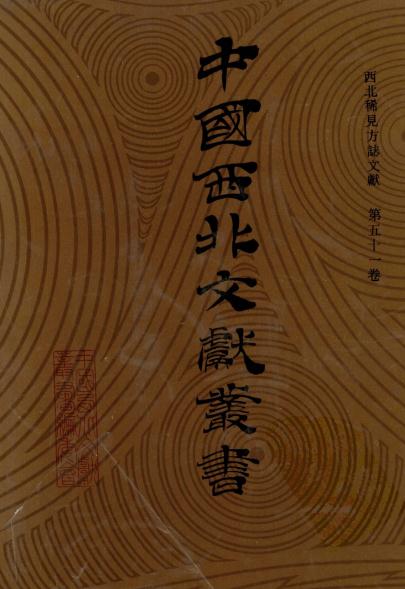 西北稀見方誌文獻 第五十一卷
中國西北文獻叢書